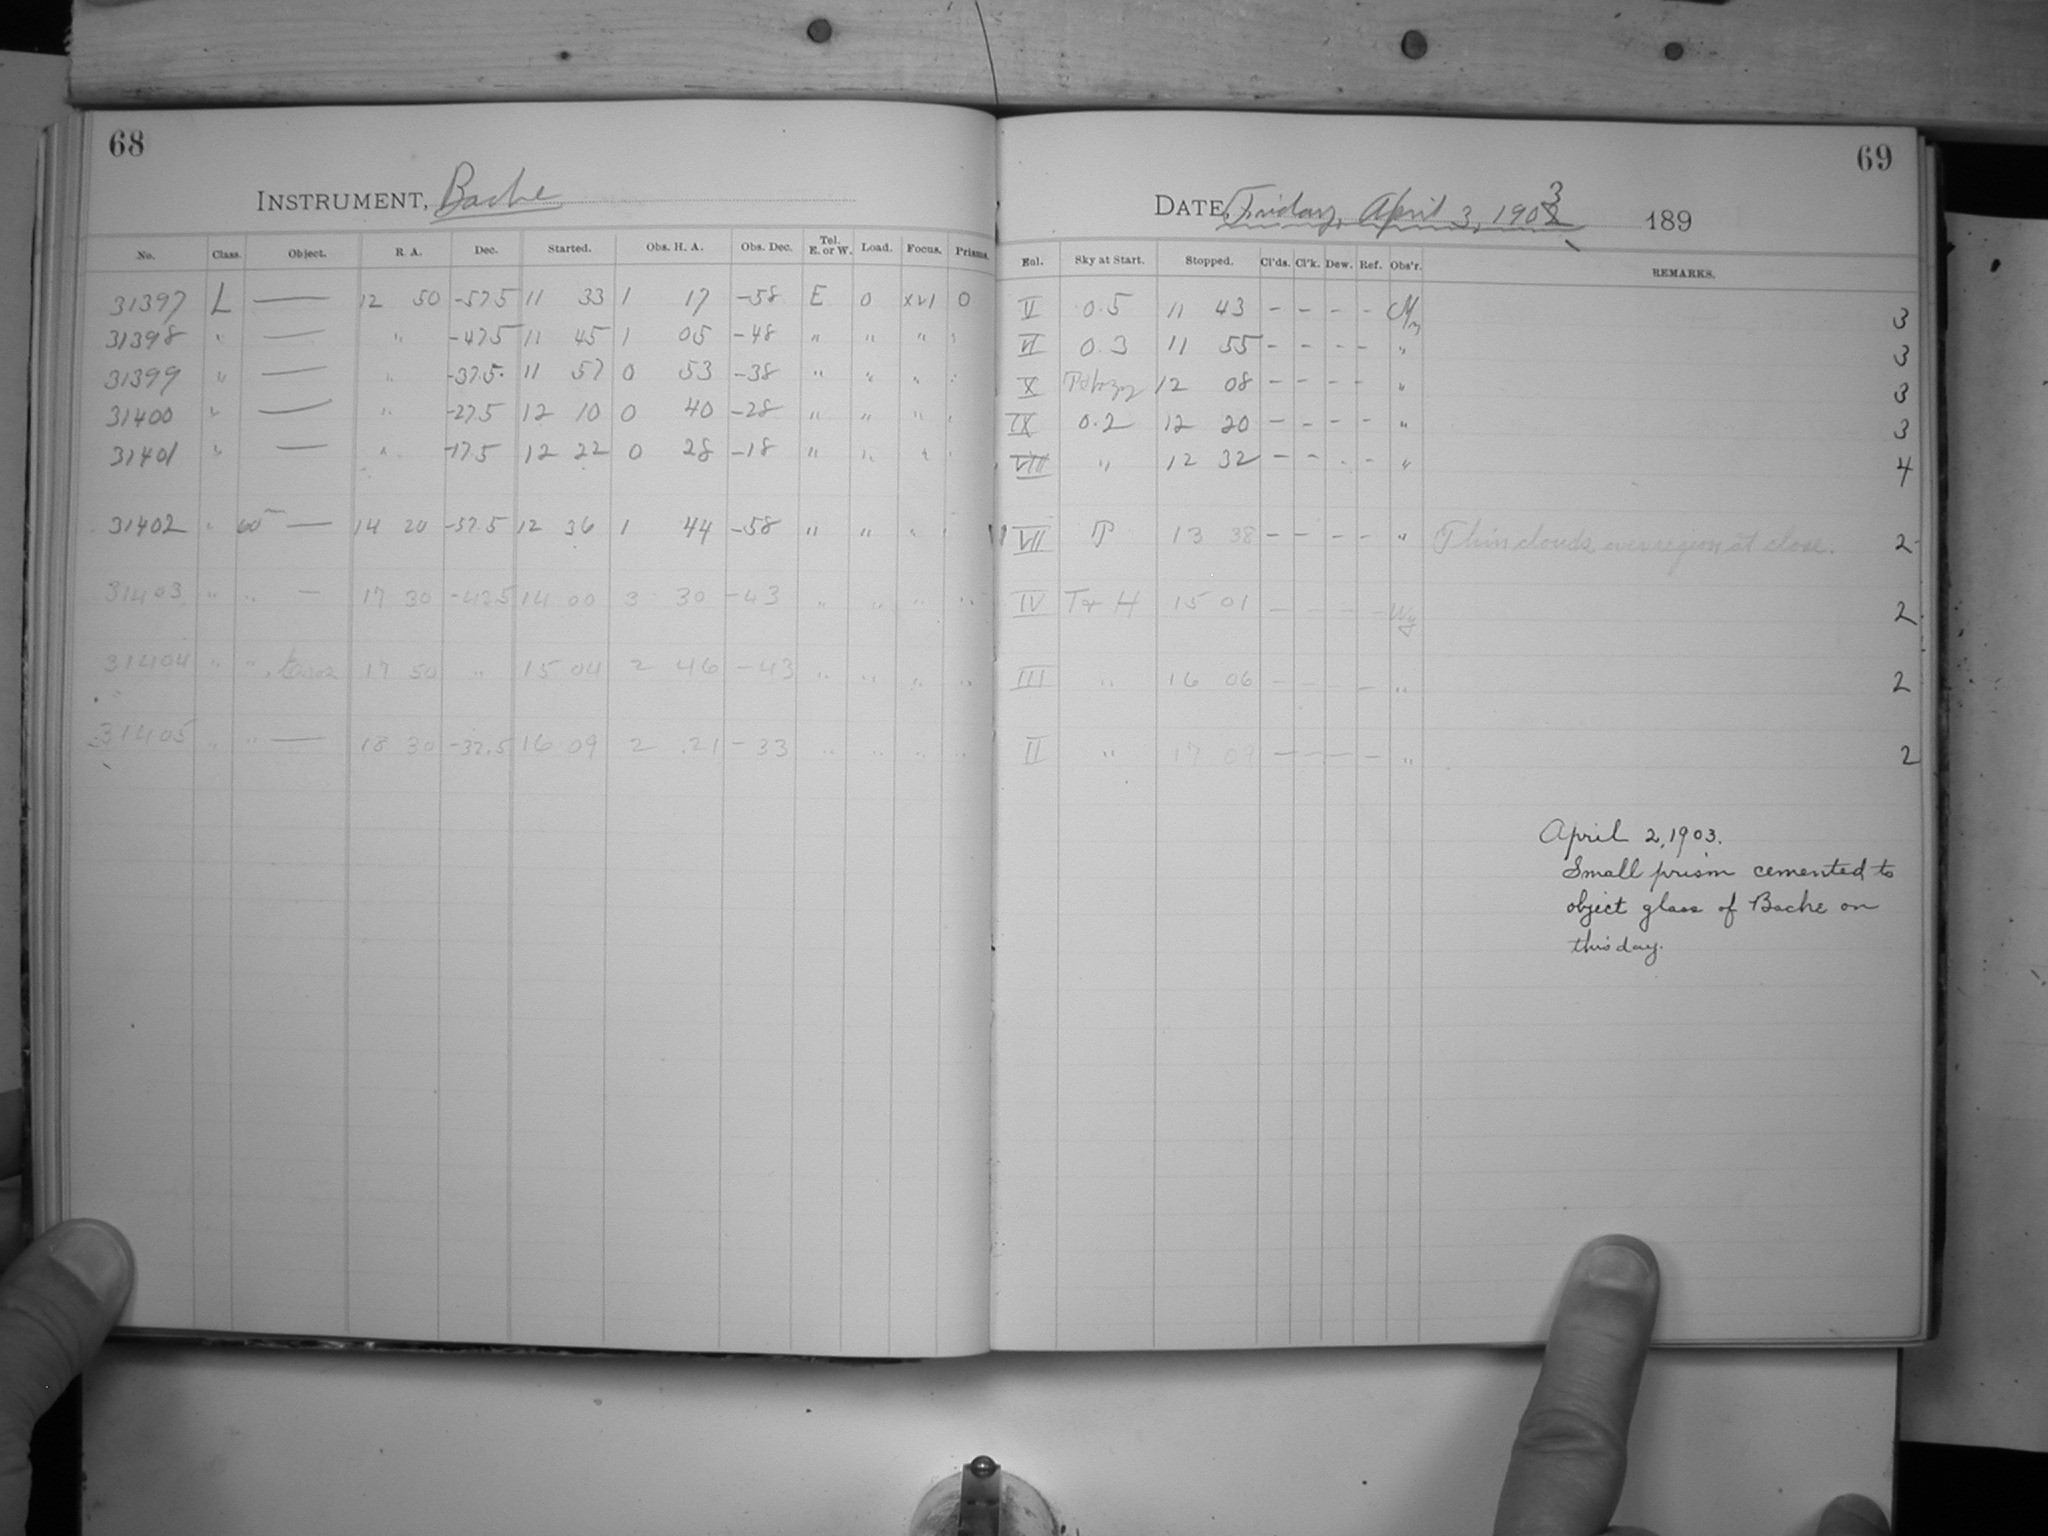 68
INSTRUMENT, Bache
No. Class. Object. R. A. Dec. Started. Obs. H. A. Obs. Dec. Tel. E. or W. Load. Focus. Prisms.
31397 L — 12 50 -57.5 11 33 1 17 -58 E 0 XVI 0
31398 " — " -47.5 11 45 1 05 -48 " " " "
31399 " — " -37.5 11 57 0 53 -38 " " " "
31400 " — " -27.5 12 10 0 40 -28 " " " "
31401 " — " -17.5 12 22 0 28 -18 " " " "
31402 " 60m — 14 20 -57.5 12 36 1 44 -58 " " " "
31403 " " — 17 30 -42.5 14 00 3 30 -43 " " " "
31404 " " 17 50 " 15 04 2 46 -43 " " " "
31405 " " — 18 30 -32.5 16 09 2 21 -33 " " " "
69
DATE, Friday, April 3, 1903 189
Eol. Sky at Start. Stopped. Cl'ds. Cl'k. Dew. Ref. Obs'r. REMARKS.
V 0.5 11 43 — — — — 3
VI 0.3 11 55 — — — — " 3
X 12 08 — — — — " 3
IX 0.2 12 20 — — — — " 3
VIII " 12 32 — — — — " 4
VII P 13 38 — — — — " Thin clouds over region at close. 2
IV T & H 15 01 — — — — 2
III " 16 06 — — — — " 2
II " 17 09 — — — — " 2
April 2, 1903.
Small prism cemented to
object glass of Bache on
this day.